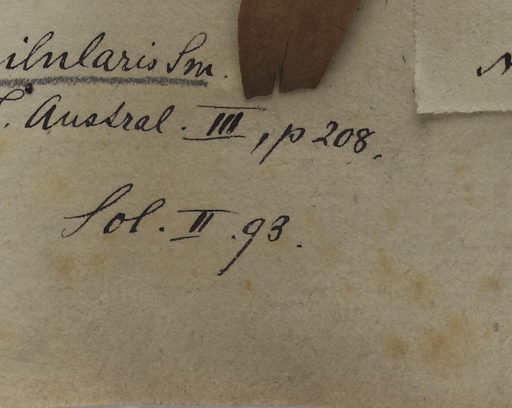 ilularis Sm.
. Austral. III, p 208.
Sol. II. 93.